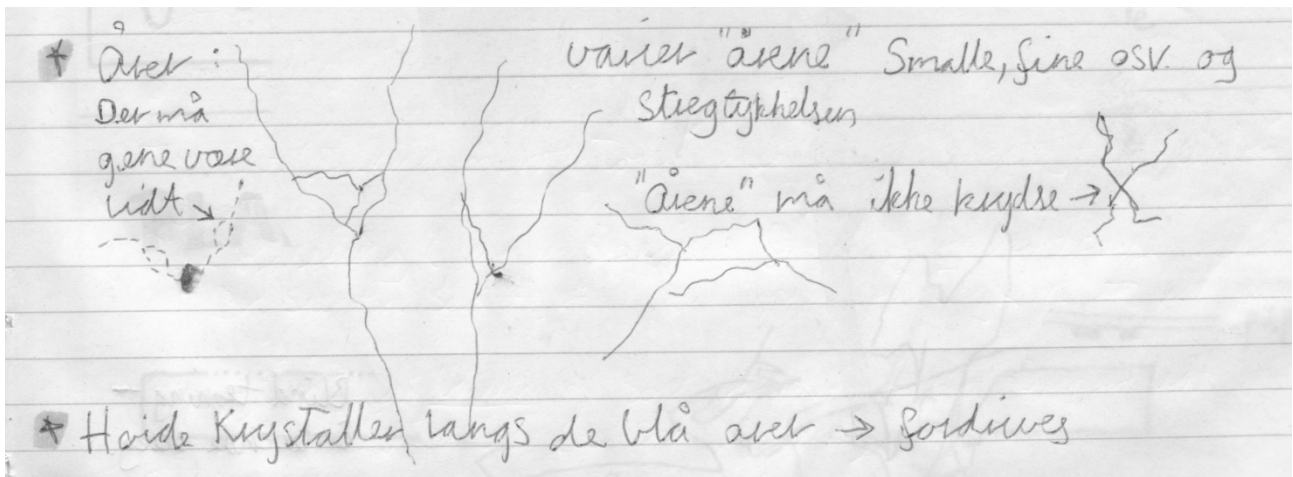 * Årer:
Der må
gerne være
lidt →
varier "årene" Smalle, fine osv. og
stregtykkelsen
"Årene" må ikke krydse →
* Hvide Krystaller langs de blå årer → fordrives